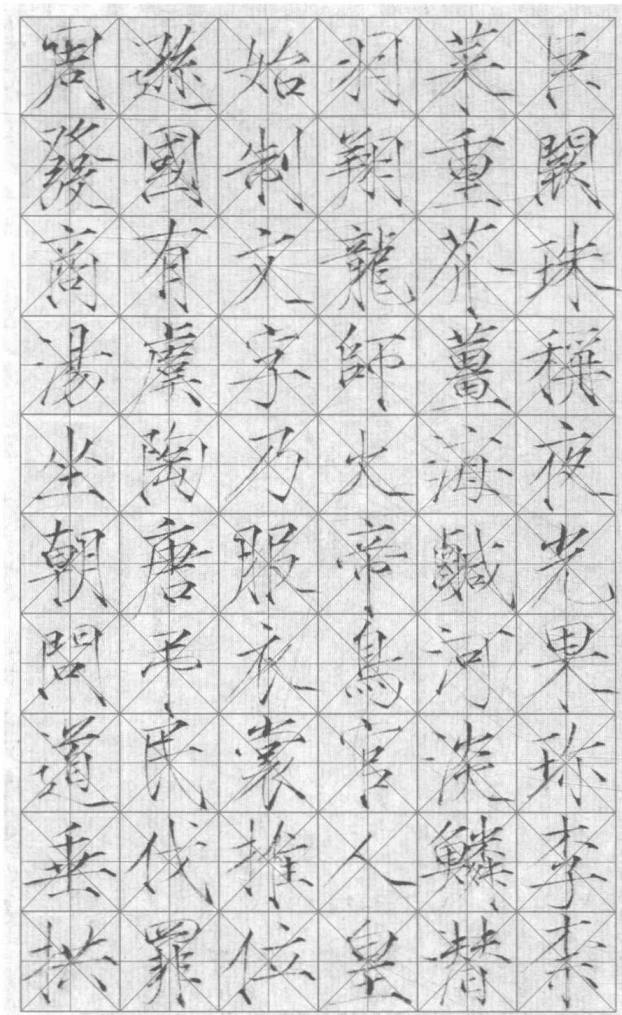 巨闕珠稱夜光果珍李柰
菜重芥薑海鹹河淡鱗潛
羽翔龍師火帝鳥官人皇
始制文字乃服衣裳推位
遜國有虞陶唐弔民伐罪
周發商湯坐朝問道垂拱